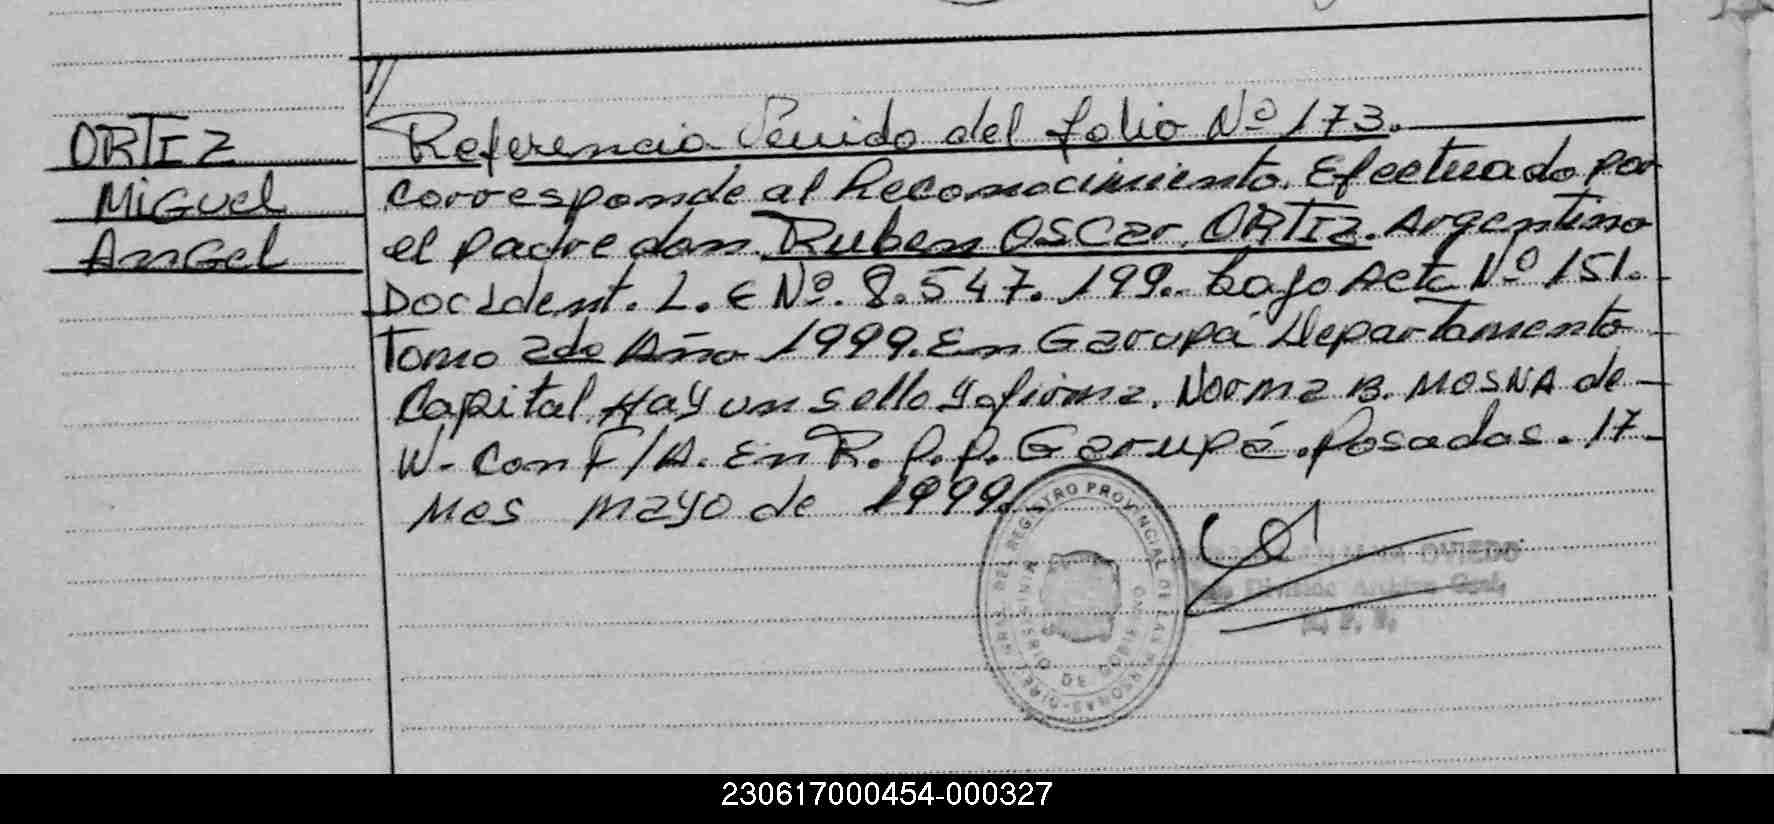 ORTIZ
MIGUEL
AnGel
//
Referencia Venido del folio Nº 173.
corresponde al Reconocimiento. Efectuado por
el padre don. Ruben OSCar. ORTIZ. Argentino
Doc Ident. L. E Nº. 8.547.199. bajo Acta Nº 151.
Tomo 2do Año 1999. En Garupá Departamento
Capital Hay un sello y firma. Norma B. MOSNA de
W. Con F/A. En R.P.P. Garupá. Posadas. 17
Mes mayo de 1999.
DEL REGISTRO PROVINCIAL DE LAS PERSONAS
OVIEDO
División Archivo Gral.
R. P. P.
230617000454-000327